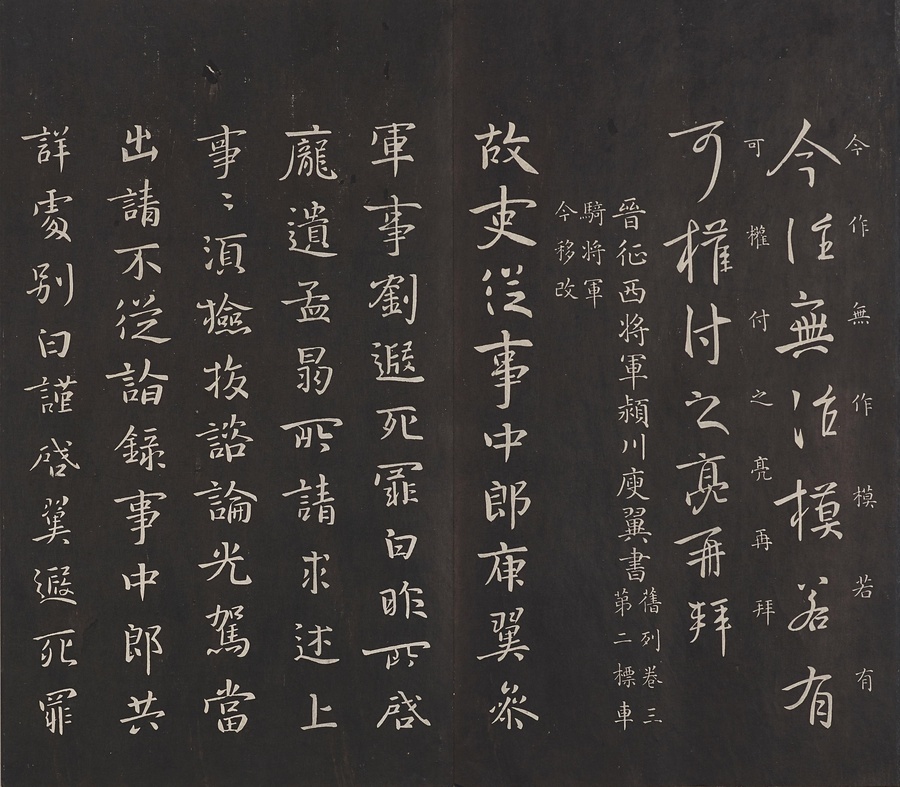 今作無作模若有
今作無作模若有
可權付之亮再拜
可權付之亮再拜
晉征西將軍潁川庾翼書
舊列卷三
第二標車
騎將軍
今移改
故吏從事中郎庾翼參
軍事劉遐死罪白昨所啓
龐遺孟昺所請求述上
事〻須檢校諮論光駕當
出請不從諮錄事中郎共
詳處別白謹啓翼遐死罪